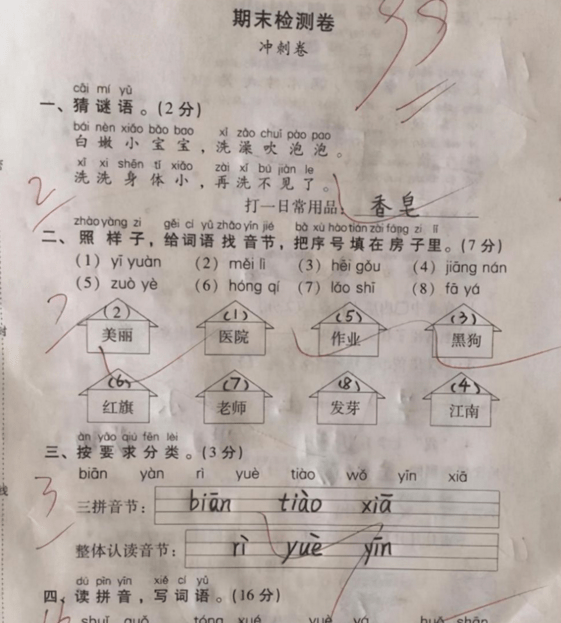 期末检测卷
冲刺卷
cāi mí yǔ
一、猜谜语。(2分)
bái nèn xiǎo bǎo bao xǐ zǎo chuī pào pao
白嫩小宝宝，洗澡吹泡泡。
xǐ xi shēn tǐ xiǎo zài xǐ bú jiàn le
洗洗身体小，再洗不见了。
打一日常用品：香皂
zhào yàng zi gěi cí yǔ zhǎo yīn jié bǎ xù hào tián zài fáng zi lǐ
二、照样子，给词语找音节，把序号填在房子里。(7分)
(1) yī yuàn (2) měi lì (3) hēi gǒu (4) jiāng nán
(5) zuò yè (6) hóng qí (7) lǎo shī (8) fā yá
(2) (1) (5) (3)
美丽 医院 作业 黑狗
(6) (7) (8) (4)
红旗 老师 发芽 江南
àn yāo qiú fēn lèi
三、按要求分类。(3分)
biān yàn rì yuè tiào wǒ yīn xiā
三拼音节：biān tiào xiā
整体认读音节：rì yuè yīn
dú pīn yīn xiě cí yǔ
四、读拼音，写词语。(16分)